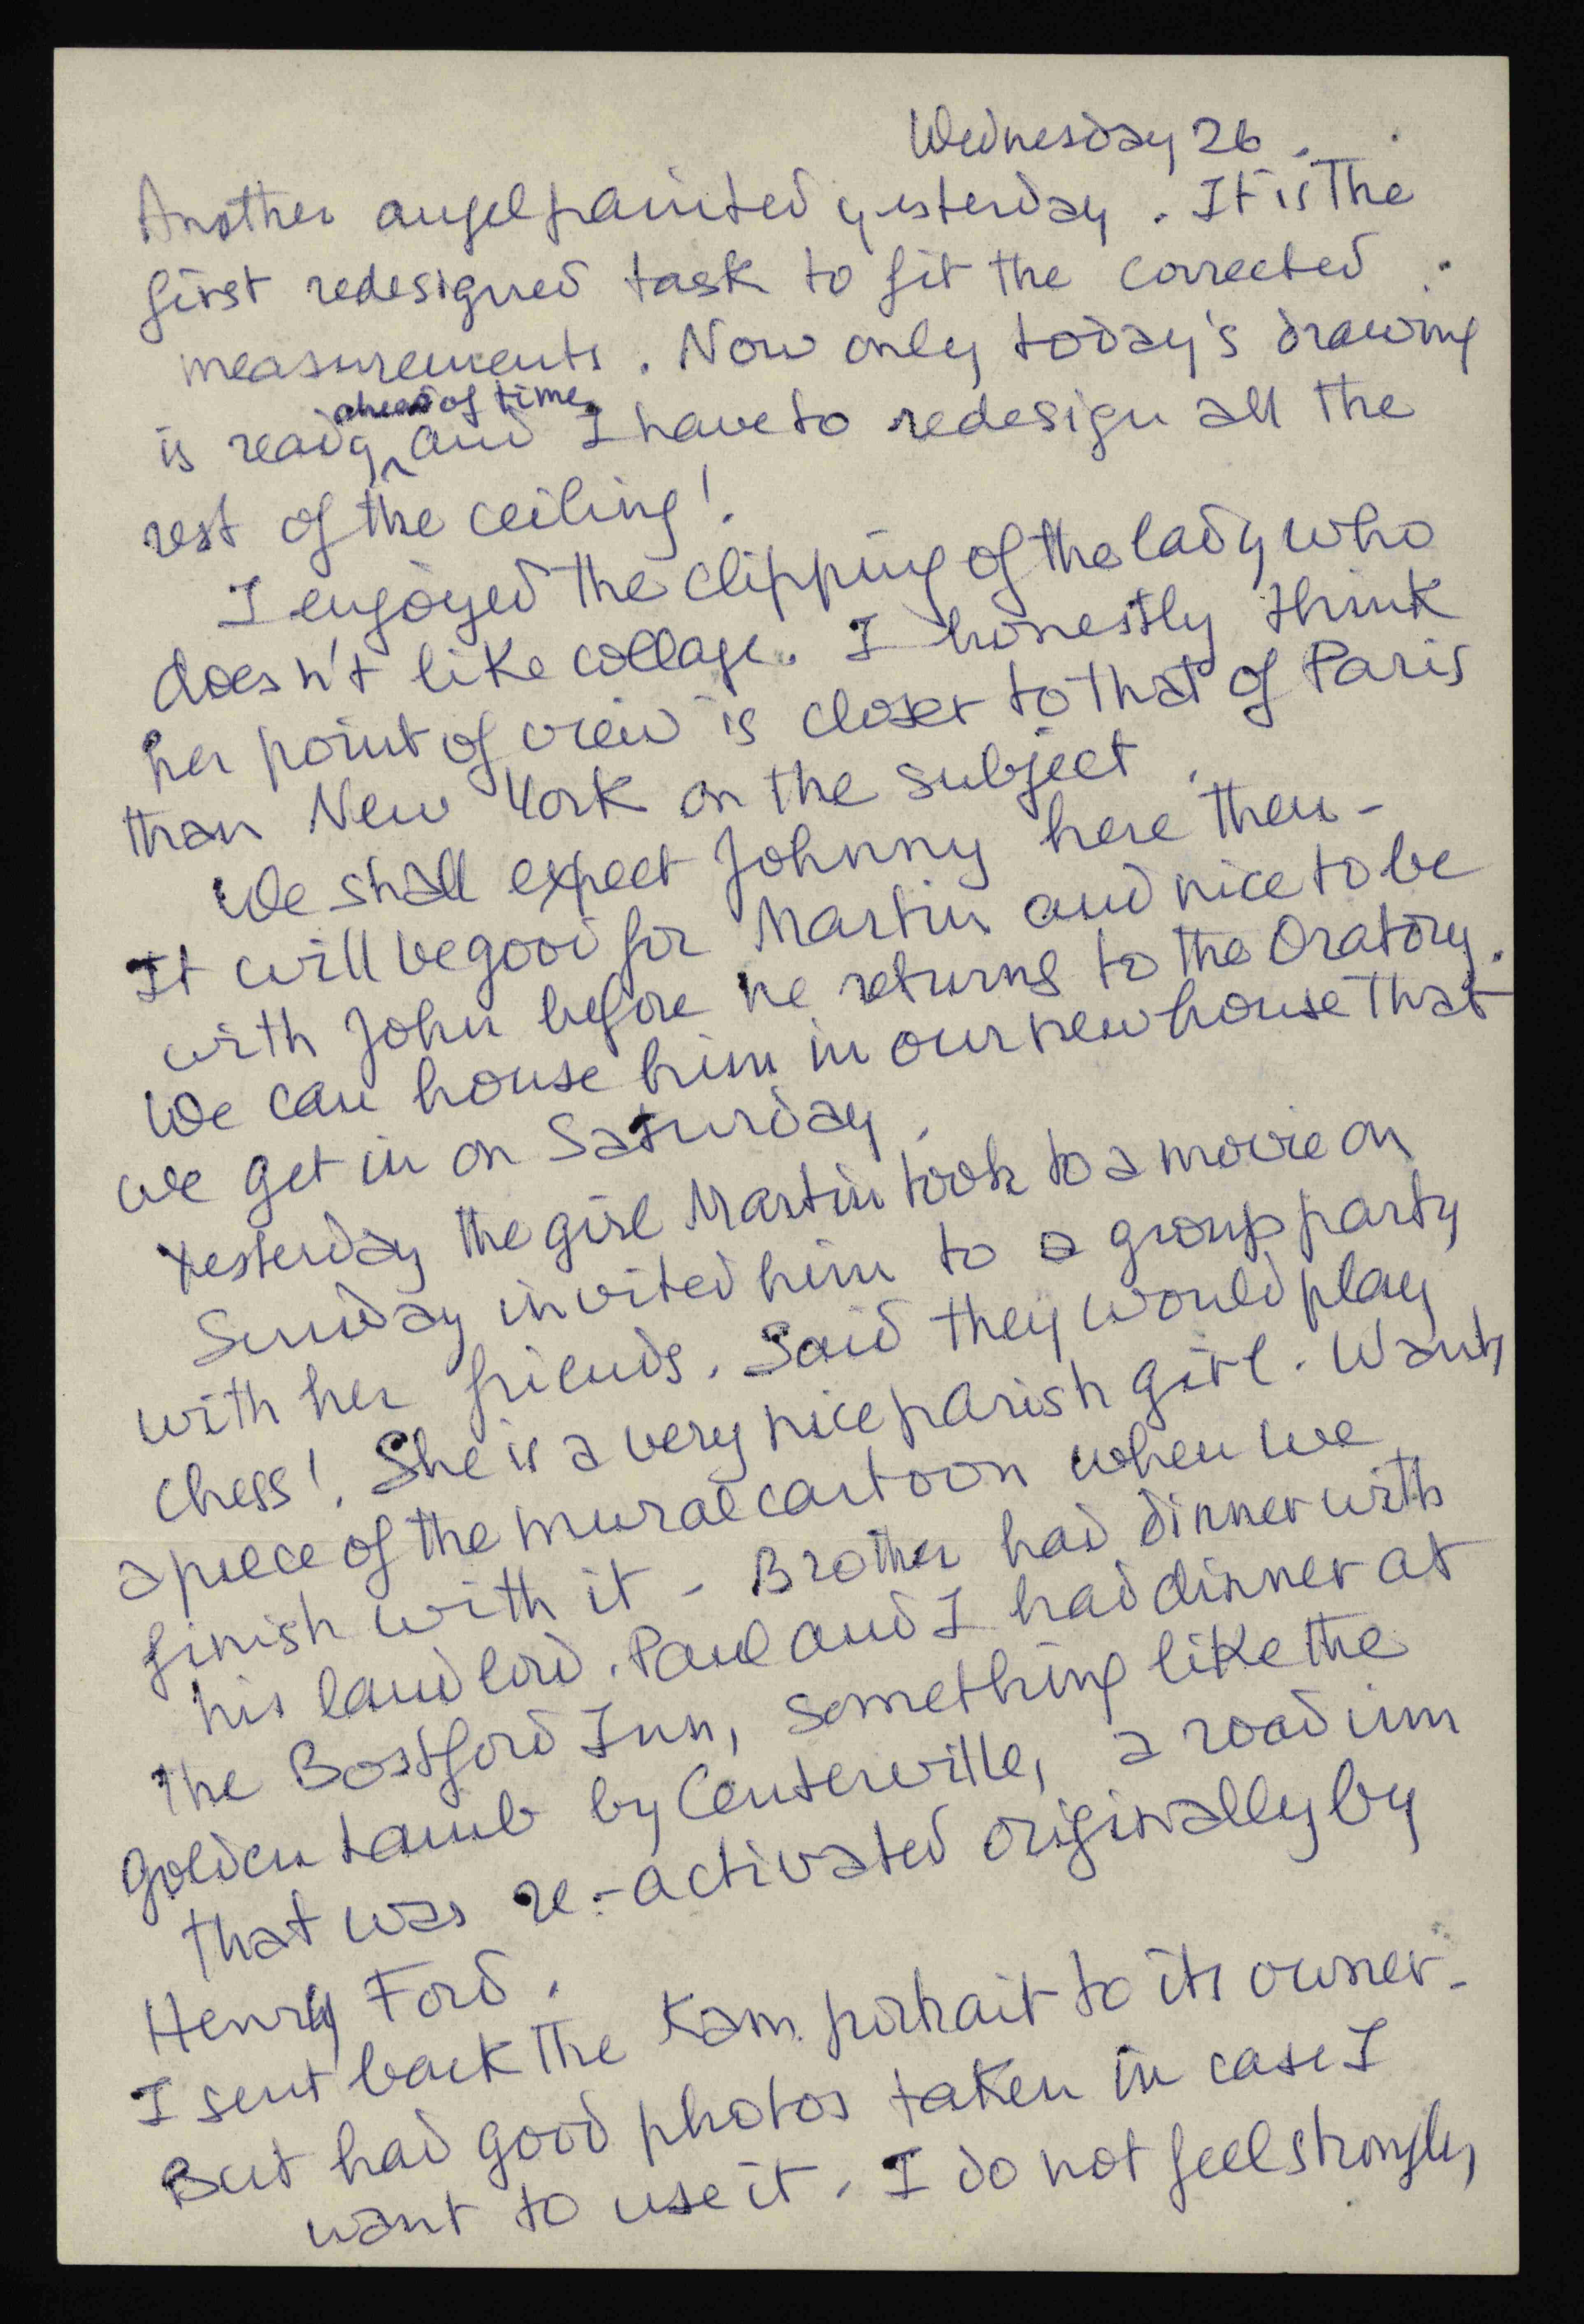 Wednesday 26.
Another angel painted yesterday. It is the
first redesigned task to fit the corrected
measurements. Now only today's drawing
ahead of time
is ready ^ and I have to redesign all the
rest of the ceiling!
I enjoyed the clipping of the lady who
doesn't like collage. I honestly think
her point of view is closer to that of Paris
than New York on the subject.
We shall expect Johnny here then -
It will be good for Martin and nice to be
with John before he returns to the Oratory.
We can house him in our new house that
we get in on Saturday.
Yesterday the girl Martin took to a movie on
Sunday invited him to a group party
with her friends. Said they would play
chess! She is a very nice parish girl. Wants
a piece of the mural cartoon when we
finish with it - Brother had dinner with
his landlord. Paul and I had dinner at
the Bostford Inn, something like the
Golden Lamb by Centerville, a road inn
that was re-activated originally by
Henry Ford.
I sent back the Kam portrait to its owner -
But had good photos taken in case I
want to use it. I do not feel strongly